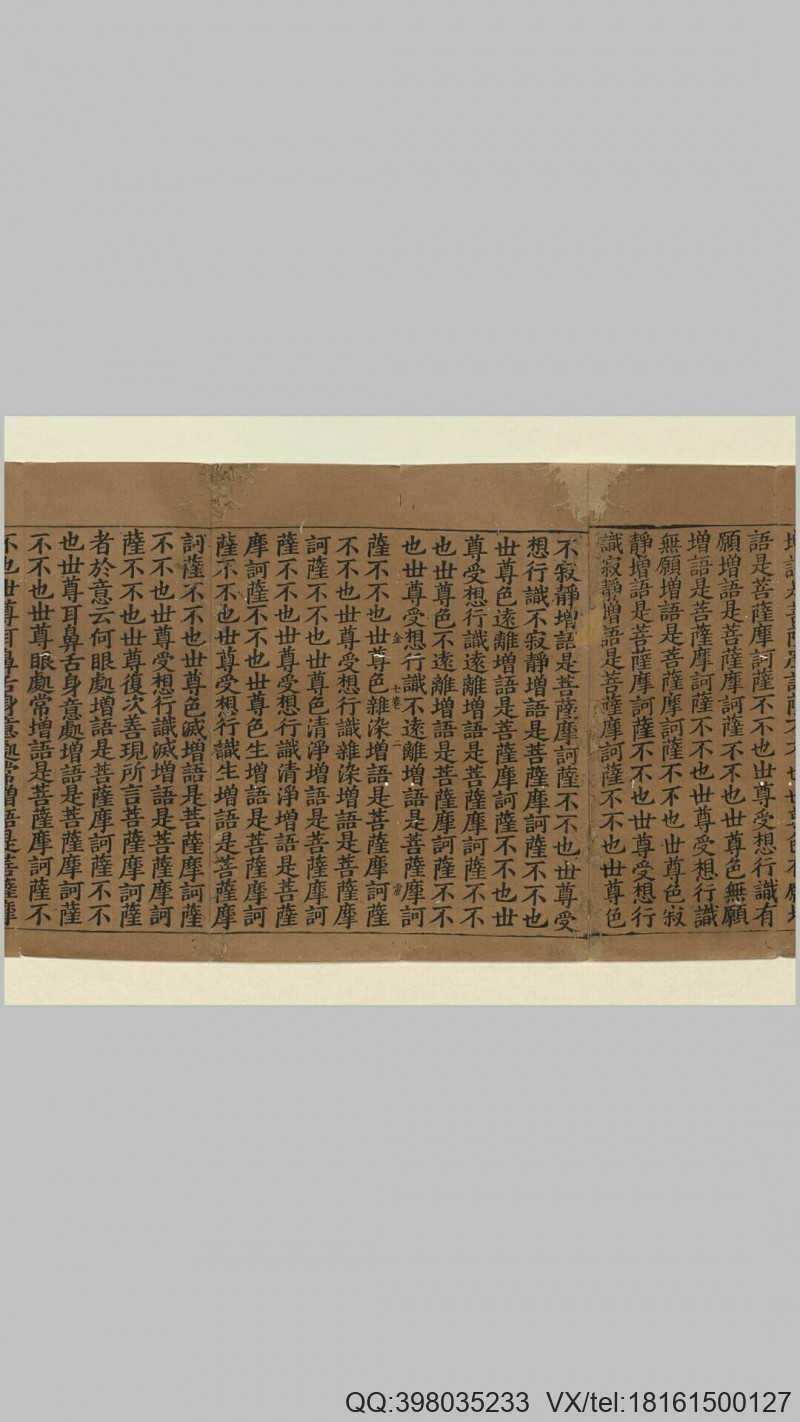 語是菩薩摩訶薩不不也世尊受想行識有
願增語是菩薩摩訶薩不不也世尊色無願
增語是菩薩摩訶薩不不也世尊受想行識
無願增語是菩薩摩訶薩不不也世尊色寂
靜增語是菩薩摩訶薩不不也世尊受想行
識寂靜增語是菩薩摩訶薩不不也世尊色
不寂靜增語是菩薩摩訶薩不不也世尊受
想行識不寂靜增語是菩薩摩訶薩不不也
世尊色遠離增語是菩薩摩訶薩不不也世
尊受想行識遠離增語是菩薩摩訶薩不不
也世尊色不遠離增語是菩薩摩訶薩不不
也世尊受想行識不遠離增語是菩薩摩訶
薩不不也世尊色雜染增語是菩薩摩訶薩
不不也世尊受想行識雜染增語是菩薩摩
訶薩不不也世尊色清淨增語是菩薩摩訶
薩不不也世尊受想行識清淨增語是菩薩
摩訶薩不不也世尊色生增語是菩薩摩訶
薩不不也世尊受想行識生增語是菩薩摩
訶薩不不也世尊色滅增語是菩薩摩訶薩
不不也世尊受想行識滅增語是菩薩摩訶
薩不不也世尊復次善現所言菩薩摩訶薩
者於意云何眼處增語是菩薩摩訶薩不不
也世尊耳鼻舌身意處增語是菩薩摩訶薩
不不也世尊眼處常增語是菩薩摩訶薩不
不也世尊耳鼻舌身意處常增語是菩薩摩
QQ:398035233 VX/tel:18161500127